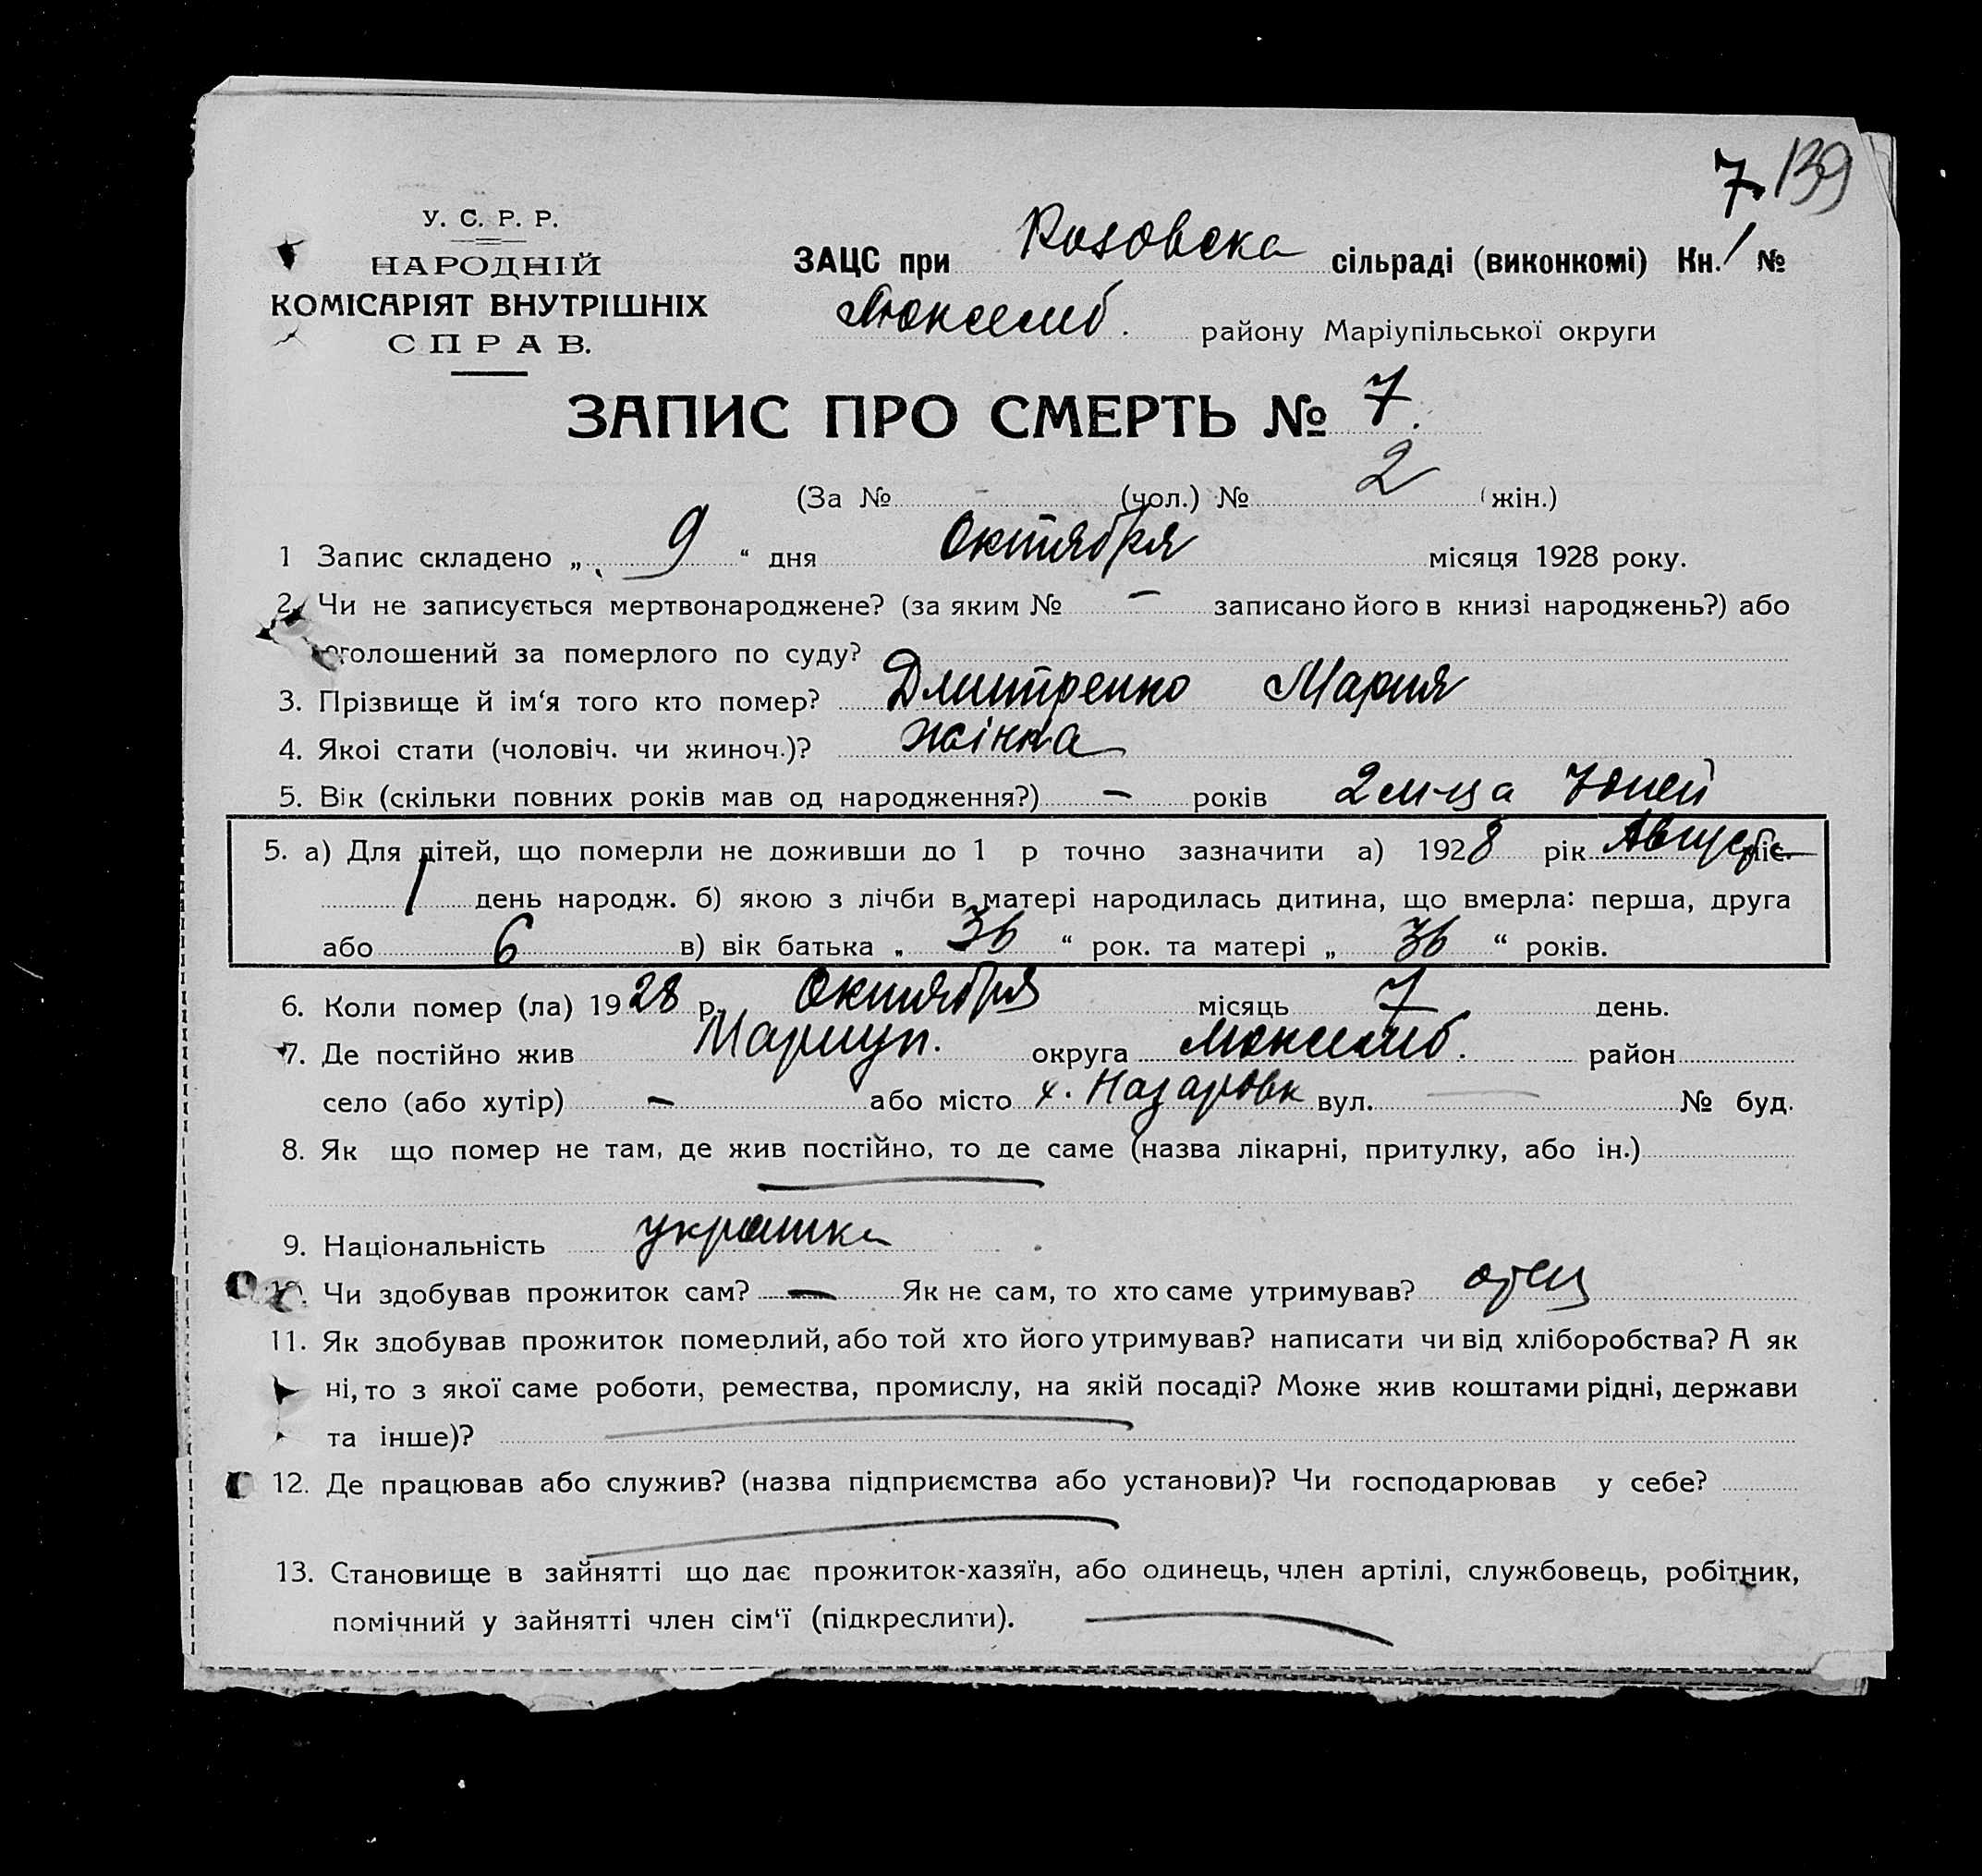 7. 139
У. С. Р. Р.
НАРОДНІЙ
КОМІСАРІЯТ ВНУТРІШНІХ
СПРАВ.
ЗАЦС при Розовска сільраді (виконкомі) Кн. 1 №
Люксемб. району Маріупільської округи
ЗАПИС ПРО СМЕРТЬ № 7.
(За № – (чол.) № 2 (жін.)
1 Запис складено „ 9 “ дня Октября місяця 1928 року.
2. Чи не записується мертвонароджене? (за яким № – записано його в книзі народжень?) або
оголошений за померлого по суду?
3. Прізвище й ім‘я того кто помер? Дмитренко Мария
4. Якоі стати (чоловіч. чи жиноч.)? жінка
5. Вік (скільки повних років мав од народження?) – років 2 м-ца 7 дней
5. а) Для дітей, що померли не доживши до 1 р точно зазначити а) 1928 рік Август міс.
1 день народж. б) якою з лічби в матері народилась дитина, що вмерла: перша, друга
або 6 в) вік батька „ 36 “ рок. та матері „ 36 “ років.
6. Коли помер (ла) 1928 р. Октября місяць 7 день.
7. Де постійно жив Мариуп. округа Люксемб. район
село (або хутір) – або місто х. Назаровк вул. № буд.
8. Як що помер не там, де жив постійно, то де саме (назва лікарні, притулку, або ін.)
9. Національність украинка
10. Чи здобував прожиток сам? – Як не сам, то хто саме утримував? отец
11. Як здобував прожиток померлий, або той хто його утримував? написати чи від хліборобства? А як
ні, то з якої саме роботи, ремества, промислу, на якій посаді? Може жив коштами рідні, держави
та інше)?
12. Де працював або служив? (назва підприємства або установи)? Чи господарював у себе?
13. Становище в зайнятті що дає прожиток-хазяїн, або одинець, член артілі, службовець, робітник,
помічний у зайнятті член сім‘ї (підкреслити).